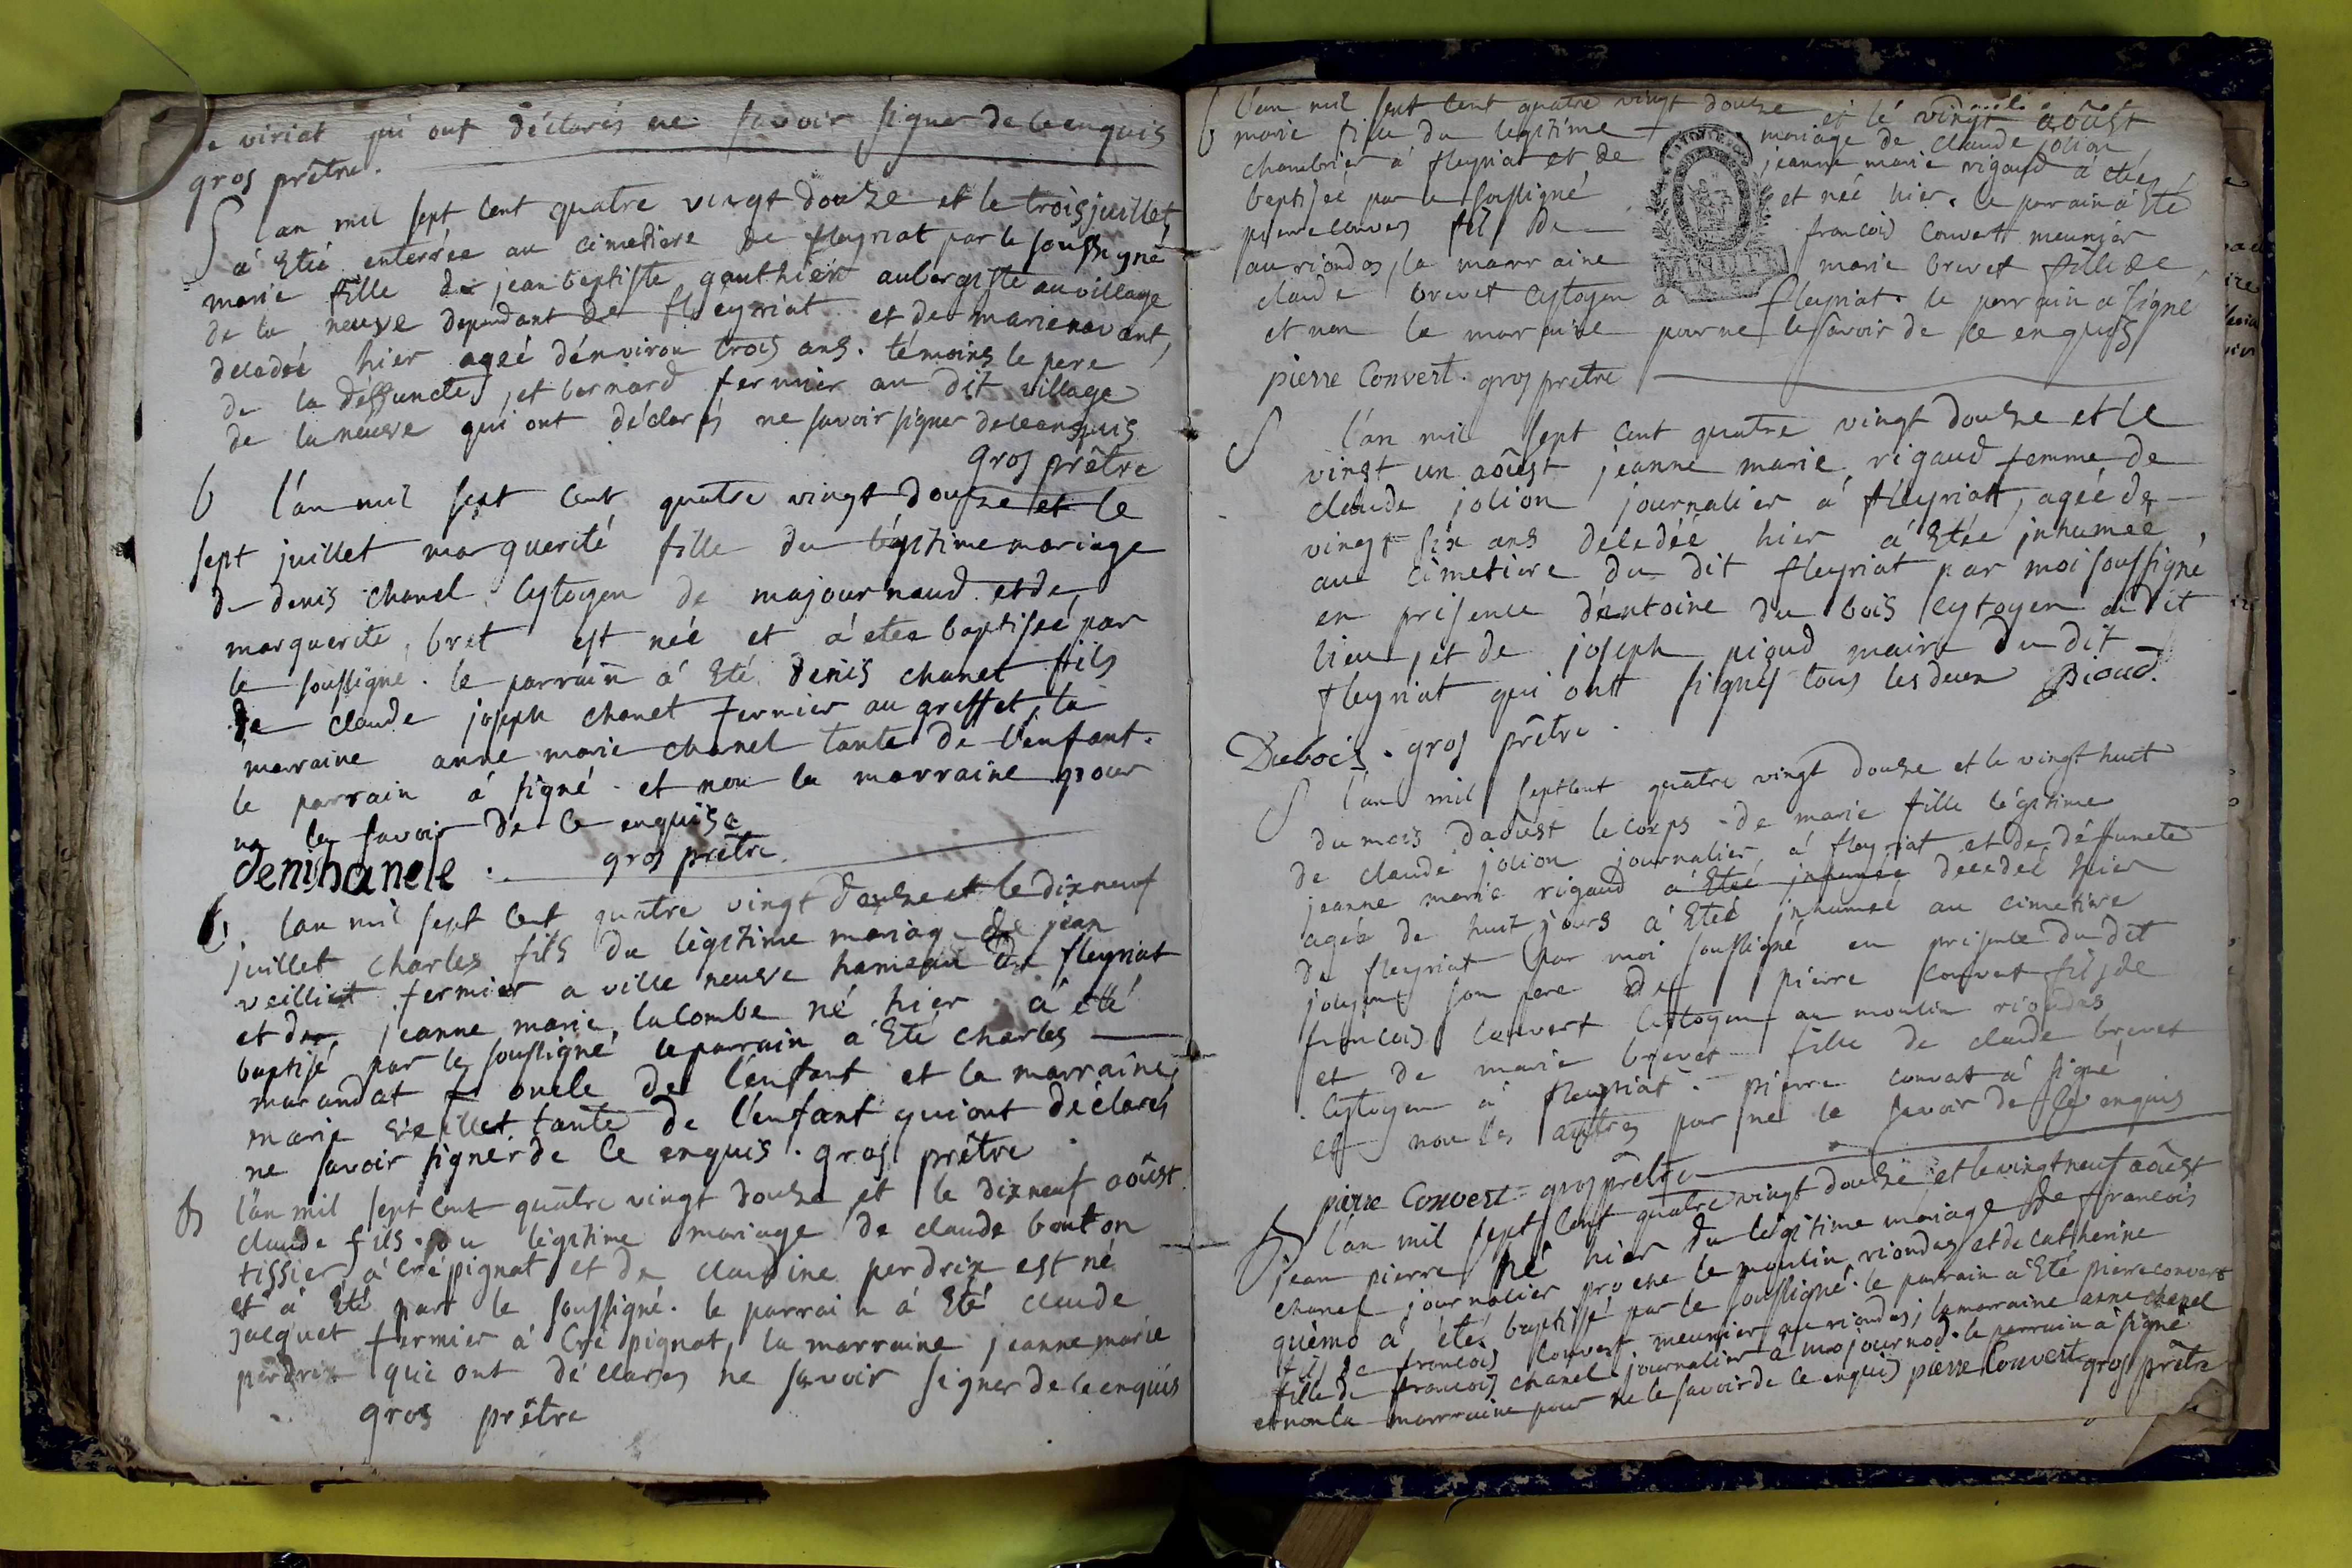 de viriat qui ont déclarés ne savoir signer de ce enquis
gros prêtre.
S l'an mil sept cent quatre vingt douze et le trois juillet
à Eté enterrée au cimetiere de fleyriat par le soussigné
marie fille de jean baptiste gauthier aubergiste au village
de la neuve dependant de fleyriat et de marie navant,
decedeé hier ageé dénviron trois ans. témoins le pere
de la deffuncte, et bernard fermier au dit village
de la neuve qui ont déclarés ne savoir signer de ce enquis
gros prêtre
b l'an mil sept cent quatre vingt douze et le
sept juillet marguerité fille du légitime mariage
de denis chanel cytoyen de majournaud et de
marguerite bret est née et à etée baptisée par
le soussigné. le parrain à Eté denis chanel fils
de claude joseph chanet fermier au greffet, la
marraine anne marie chanel tante de l'enfant.
le parrain à signé. et non la marraine pour
ne le savoir de ce enquise
denihanele. gros prêtre.
b l'an mil sept cent quatre vingt douze et le dix neuf
juillet charles fils du légitime mariage de jean
veilliet fermier a ville neuve hameau de fleyriat
et de jeanne marie lacombe né hier à été
baptisé par le soussigné le parrain à Eté charles
marandat oncle de l'enfant et la marraine,
marie veillet tante de l'enfant qui ont déclarés
ne savoir signer de ce enquis. gros prêtre
b l'an mil sept cent quatre vingt douze et le dix neuf aôust
claude fils du légitime mariage de claude bouton
tissier à crépignat et de claudine perdrix est né
et à Eté par le soussigné. le parrain à Eté claude
jacquet fermier à crépignat, la marraine jeanne marie
perdrix qui ont déclarés ne savoir signer de ce enquis
gros prêtre
b l'an mil sept cent quatre vingt douze et le vingt aôust
marie fille du legitime mariage de claude jolion
chambrier à fleyriat et de jeanne marie rigaud à etée
baptiseé par le soussigné et neé hier. le parain à Eté
pierre convers fils de francois convert meunier
au riondas, la marraine marie brevet fille de
claude brevet cytoyen a fleyriat. le parrain a signé
et non la maraine pour ne le savoir de ce enquis
pierre Convert. gros prêtre
S l'an mil sept cent quatre vingt douze et le
vingt un aôust jeanne marie rigaud femme de
claude jolion journalier à fleyriat, ageé de
vingt six ans décédéé hier à Etée inhumeé
au cimetiere du dit fleyriat par moi soussigné
en présence d'entoine du bois cytoyen au dit
lieu, et de joseph pioud maire du dit
fleyriat qui ont signés tous les deux Pioud.
Dubois. gros prêtre.
S l'an mil sept cent quatre vingt douze et le vingt huit
du mois daoust le corps de marie fille légitime
de claude jolion journalier à fleyriat et de deffuncte
jeanne marie rigaud à Eteé inhumée decedeé hier
ageé de huit jours à Eteé inhumeé au cimetiere
de fleyriat par moi soussigné en présence du dit
jolion son pere de pierre convert fils de
francois convert cytoyen au moulin riondas
et de marie brevet fille de claude brevet
cytoyen à fleyriat. pierre convert à signé
et non les autres pour ne le savoir de ce enquis
pierre Convert gros prêtre
b l'an mil sept cent quatre vingt douze et le vingt neuf aôust
jean pierre né hier du légitime mariage de francois
chanel journalier proche le moulin riondas et de catherine
quémo à été baptisé par le soussigné. le parrain à Eté pierre convert
fils de francois convert meunier au riondas, la marraine anne chanel
fille de francois chanel journalier à majournod. le parrain à signé
et non la marrraine pour ne le savoir de ce enquis pierre Convert gros prêtre